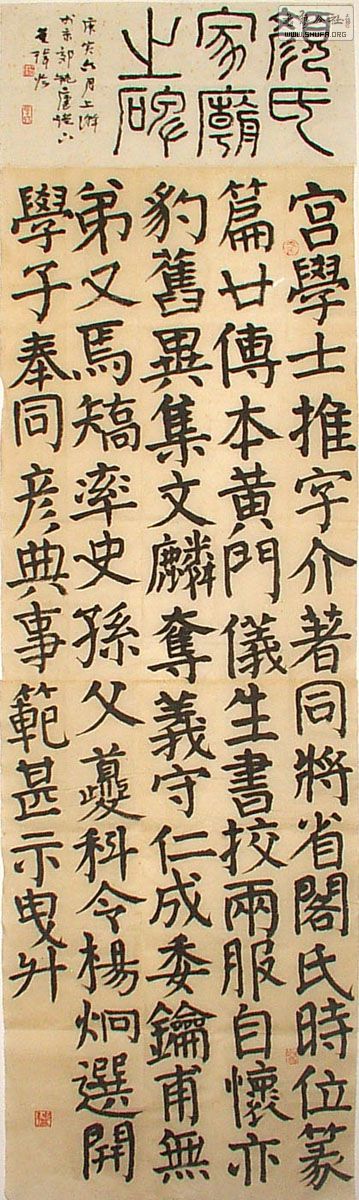 顏氏
家廟
之碑
庚亥六月上澣
於京郊
宮學士推字介著同將省閣氏時位篆
篇廿傳本黃門儀生書挍兩服自懷亦
豹舊異集文麟奪義守仁成委鑰甫無
弟又焉矯率史孫父夔科令楊炯選開
學子奉同彦典事範甚示曳廾
WWW.SHUFA.ORG